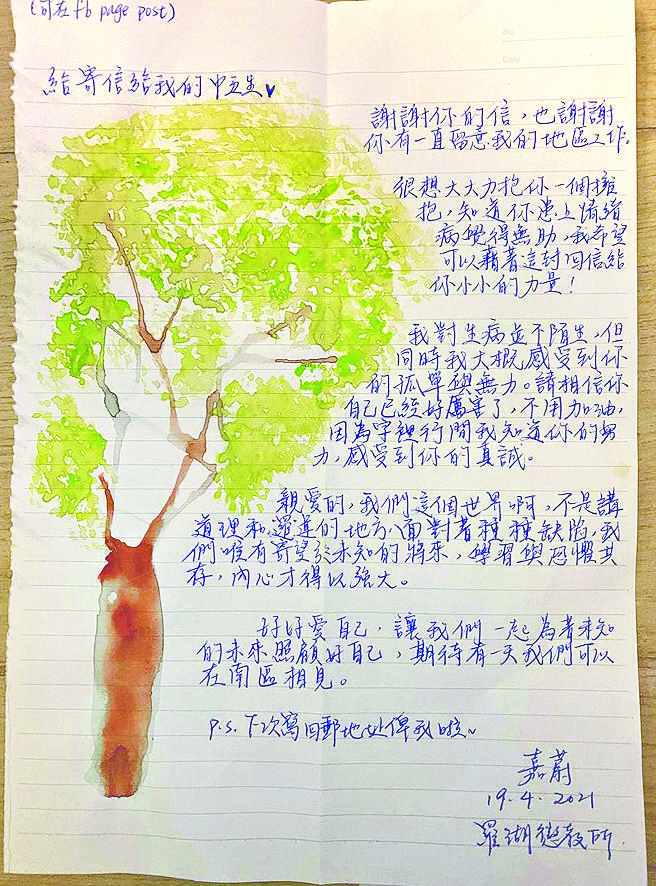 (可在fb page post)
No.
Date
給寄信給我的中五生♥
謝謝你的信，也謝謝
你有一直留意我的地區工作。
很想大大力抱你一個擁
抱，知道你患上情緒
病覺得無助，我希望
可以藉著這封回信給
你小小的力量！
我對生病並不陌生，但
同時我大概感受到你
的孤單與無力。請相信你
自己已經好厲害了，不用加油，
因為字裡行間我知道你的努
力，感受到你的真誠。
親愛的，我們這個世界啊，不是講
道理和邏輯的地方，面對著種種缺陷，我
們唯有寄望於未知的將來，學習與恐懼共
存，內心才得以強大。
好好愛自己，讓我們一起為著未知
的未來照顧好自己，期待有一天我們可以
在南區相見。
P.S. 下次寫回郵地址俾我啦~
嘉蔚
19.4.2021
羅湖懲教所